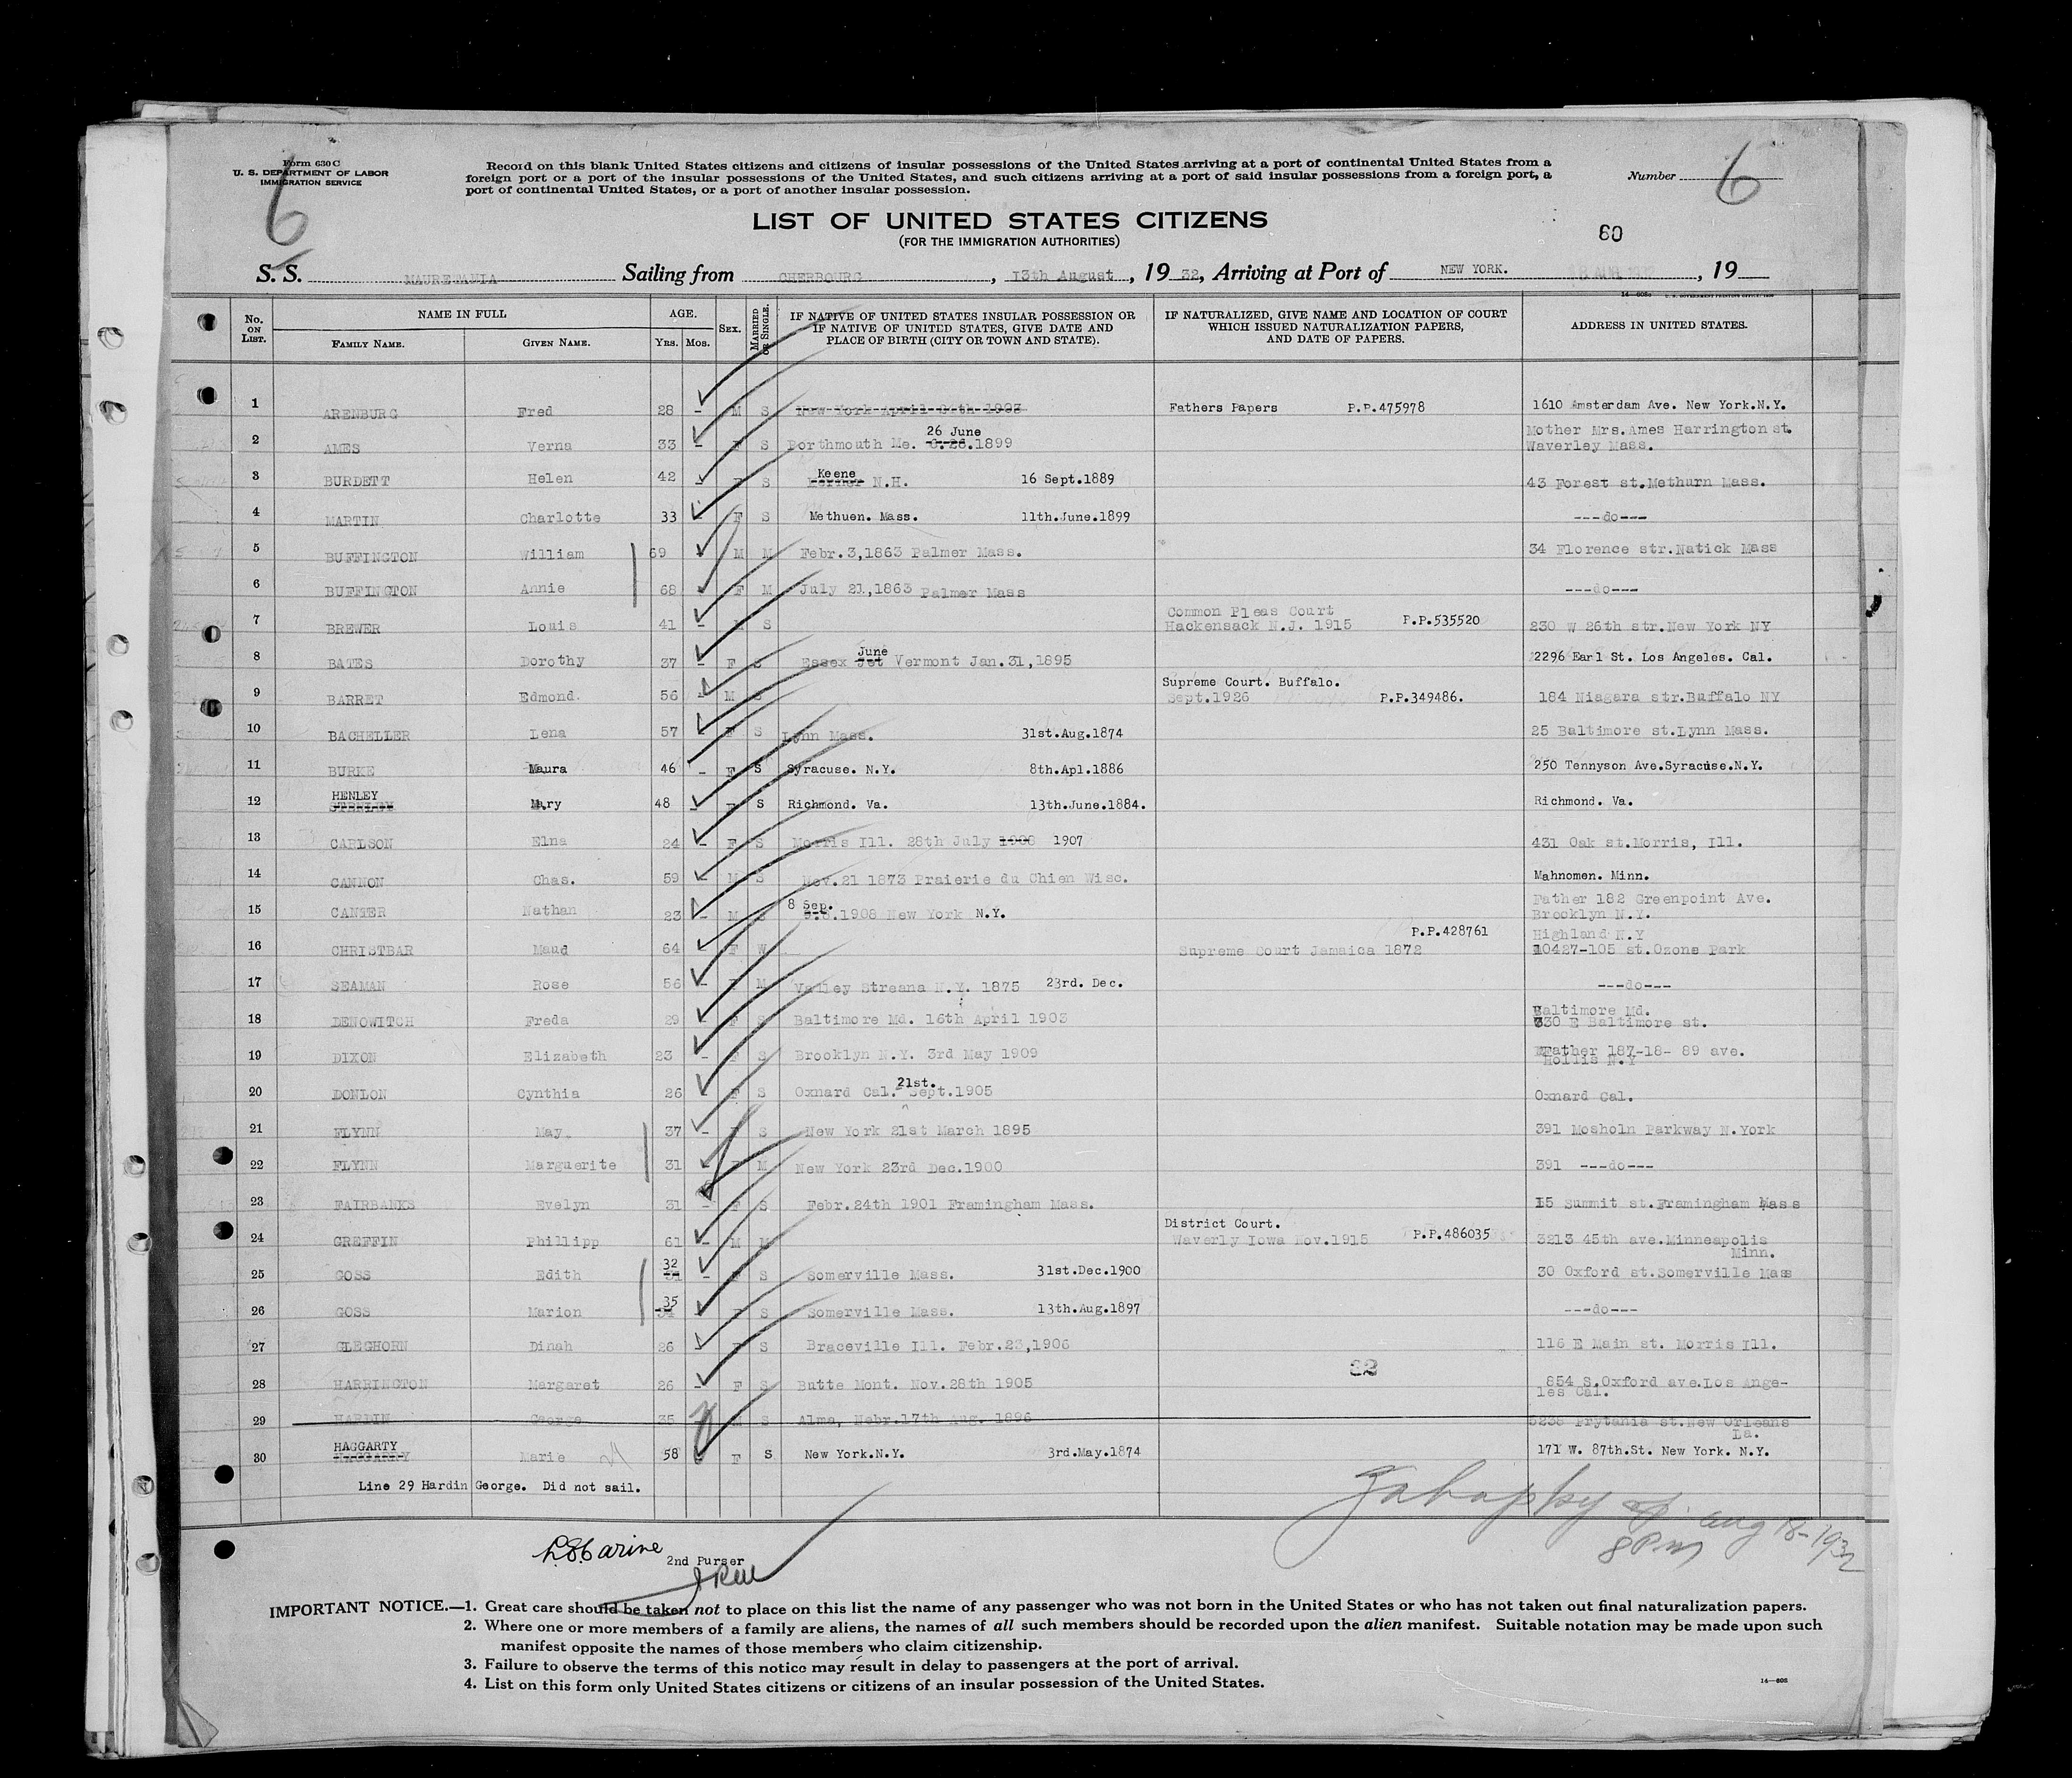 Form 630 C
U. S. DEPARTMENT OF LABOR
IMMIGRATION SERVICE
6
Record on this blank United States citizens and citizens of insular possessions of the United States arriving at a port of continental United States from a
foreign port or a port of the insular possessions of the United States, and such citizens arriving at a port of said insular possessions from a foreign port, a
port of continental United States, or a port of another insular possession.
Number 6
LIST OF UNITED STATES CITIZENS
(FOR THE IMMIGRATION AUTHORITIES)
60
S. S. MAURETANIA Sailing from CHERBOURG, 13th August, 1932, Arriving at Port of NEW YORK. 18 AUG 1932, 19
No. ON LIST. NAME IN FULL FAMILY NAME. GIVEN NAME. AGE. YRS. MOS. SEX. MARRIED OR SINGLE. IF NATIVE OF UNITED STATES INSULAR POSSESSION OR IF NATIVE OF UNITED STATES, GIVE DATE AND PLACE OF BIRTH (CITY OR TOWN AND STATE). IF NATURALIZED, GIVE NAME AND LOCATION OF COURT WHICH ISSUED NATURALIZATION PAPERS, AND DATE OF PAPERS. ADDRESS IN UNITED STATES.
1 ARENBURG Fred 28 - M S New York April 24th 1903 Fathers Papers P.P.475978 1610 Amsterdam Ave. New York.N.Y.
2 AMES Verna 33 - F S Porthmouth Me. 26 June 6.26.1899 Mother Mrs.Ames Harrington st. Waverley Mass.
3 BURDETT Helen 42 - F S Keene N.H. 16 Sept.1889 43 Forest st.Methurn Mass.
4 MARTIN Charlotte 33 - F S Methuen. Mass. 11th.June.1899 ---do---
5 BUFFINGTON William 69 M M Febr. 3,1863 Palmer Mass. 34 Florence str.Natick Mass
6 BUFFINGTON Annie 68 F M July 21,1863 Palmer Mass ---do---
7 BREWER Louis 41 - M S Common Pleas Court Hackensack N.J. 1915 P.P.535520 230 W 26th str.New York NY
8 BATES Dorothy 37 - F S Essex Jct June Vermont Jan.31,1895 2296 Earl St. Los Angeles. Cal.
9 BARRET Edmond. 56 - M S Supreme Court. Buffalo. Sept.1926 P.P.349486. 184 Niagara str.Buffalo NY
10 BACHELLER Lena 57 - F S Lynn Mass. 31st.Aug.1874 25 Baltimore st.Lynn Mass.
11 BURKE Maura 46 - F S Syracuse. N.Y. 8th.Apl.1886 250 Tennyson Ave.Syracuse.N.Y.
12 HENLEY STENLEY Mary 48 - F S Richmond. Va. 13th.June.1884. Richmond. Va.
13 CARLSON Elna 24 - F S Morris Ill. 28th July 1908 1907 431 Oak st.Morris, Ill.
14 CANNON Chas. 59 - M S Nov.21 1873 Praierie du Chien Wisc. Mahnomen. Minn.
15 CANTER Nathan 23 - M S 8 Sep. 9.8.1908 New York N.Y. Father 182 Greenpoint Ave. Brooklyn N.Y.
16 CHRISTBAR Maud 64 - F W Supreme Court Jamaica 1872 P.P.428761 Highland N.Y 10427-105 st.Ozone Park
17 SEAMAN Rose 56 - F M Valley Streana N.Y. 1875 23rd. Dec. ---do---
18 DENOWITCH Freda 29 - F S Baltimore Md. 16th April 1903 Baltimore Md. 730 E Baltimore st.
19 DIXON Elizabeth 23 - F S Brooklyn N.Y. 3rd May 1909 Father 187-18- 89 ave. Hollis N.Y
20 DONLON Cynthia 26 F S Oxnard Cal. 21st. Sept.1905 Oxnard Cal.
21 FLYNN May. 37 - F S New York 21st March 1895 391 Mosholn Parkway N.York
22 FLYNN Marguerite 31 - F M New York 23rd Dec.1900 391 ---do---
23 FAIRBANKS Evelyn 31 - F S Febr.24th 1901 Framingham Mass. 15 Summit st.Framingham Mass
24 GREFFIN Phillipp 61 - M M District Court. Waverly Iowa Nov.1915 P.P.486035 3213 45th ave.Minneapolis Minn.
25 GOSS Edith 32 31 - F S Somerville Mass. 31st.Dec.1900 30 Oxford st.Somerville Mass
26 GOSS Marion 35 34 F S Somerville Mass. 13th.Aug.1897 ---do---
27 GLEGHORN Dinah 26 - F S Braceville Ill. Febr.23,1906 116 E Main st. Morris Ill.
32
28 HARRINGTON Margaret 26 - F S Butte Mont. Nov.28th 1905 854 S.Oxford ave.Los Ange- les Cal.
29 HARDIN George 35 M S Alma, Nebr.17th Aug. 1896 5238 Prytania st.New Orleans La.
30 HAGGARTY HAGGARRY Marie 58 F S New York.N.Y. 3rd.May.1874 171 W. 87th.St. New York. N.Y.
Line 29 Hardin George. Did not sail.
Aug 18-1932
8 P.m
2nd Purser
IMPORTANT NOTICE.—1. Great care should be taken not to place on this list the name of any passenger who was not born in the United States or who has not taken out final naturalization papers.
2. Where one or more members of a family are aliens, the names of all such members should be recorded upon the alien manifest. Suitable notation may be made upon such
manifest opposite the names of those members who claim citizenship.
3. Failure to observe the terms of this notice may result in delay to passengers at the port of arrival.
4. List on this form only United States citizens or citizens of an insular possession of the United States.